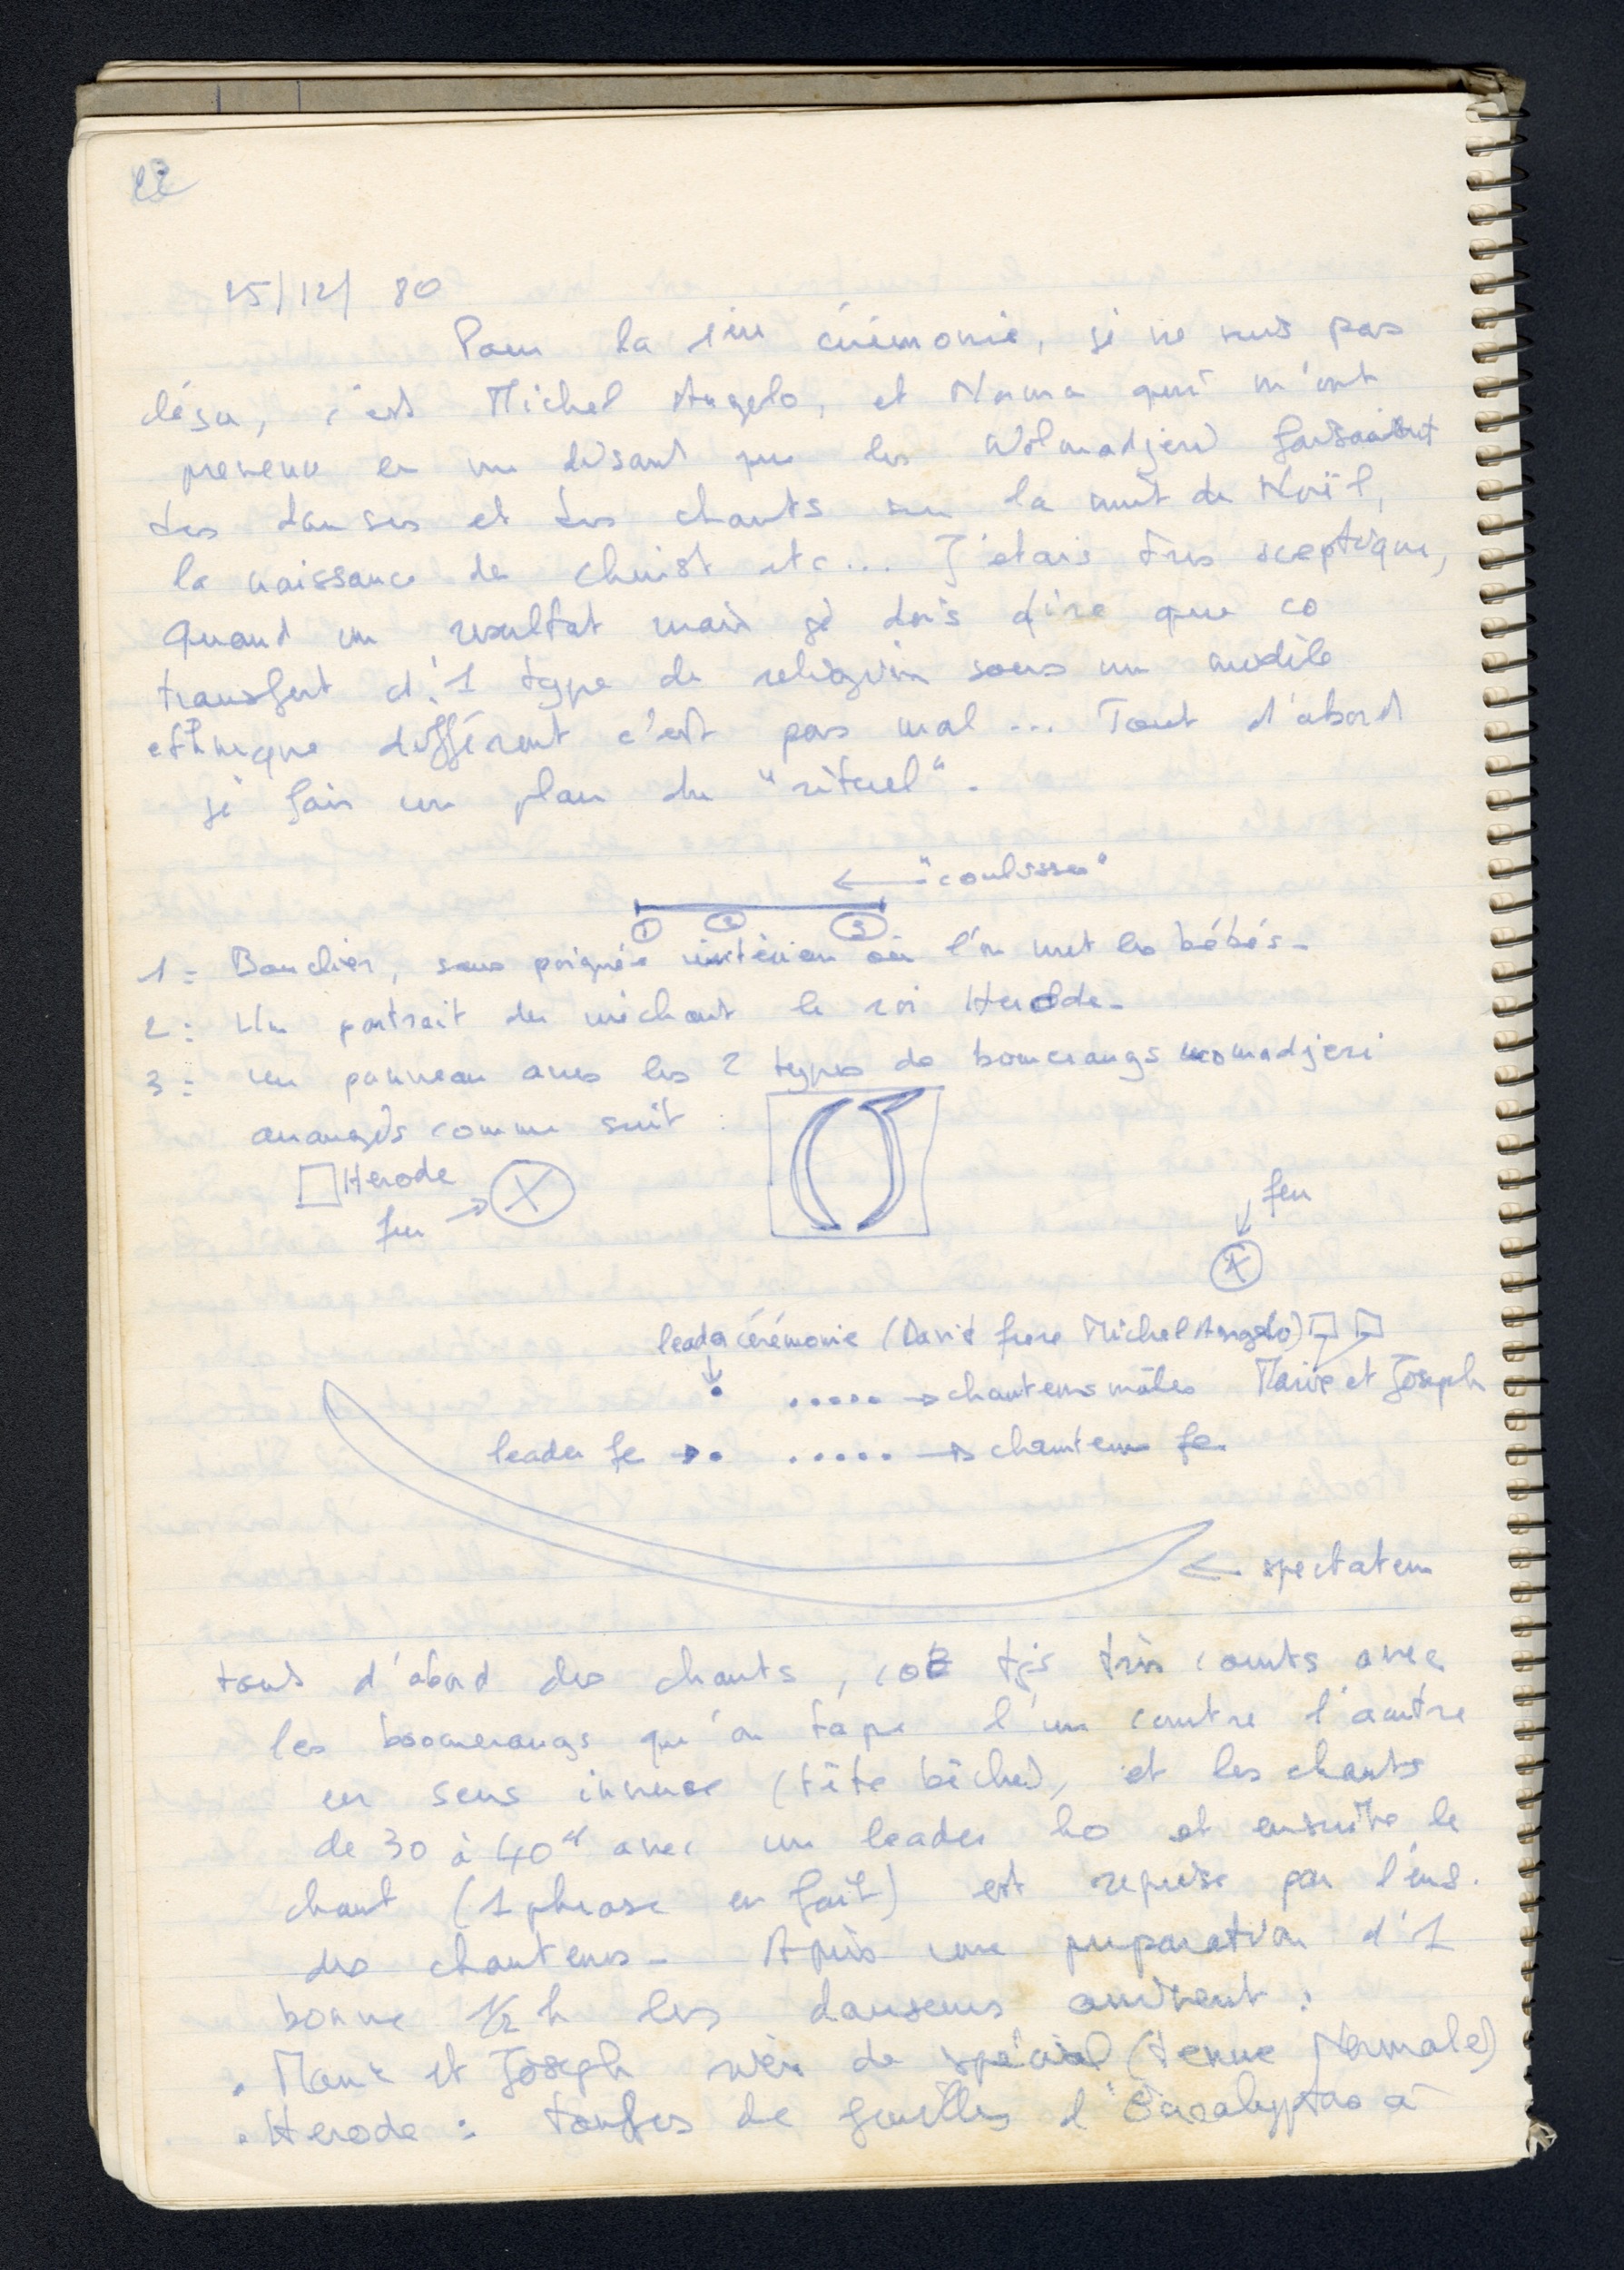 22
25/12/80
Pour la 1ère cérémonie, je ne suis pas
déçu, c'est Michel Angelo, et Norma qui m'ont
prevenu en me disant que les Wolmadjeri faisaient
des danses et des chants sur la nuit de Noël,
la naissance du Christ etc... J'etais tres sceptique,
Quand au resultat mais je dois dire que ce
transfert d'1 type de religion sous un modèle
ethnique différent c'est pas mal ... Tout d'abord
je fais un plan du "rituel".
"coulisses"
1 2 3
1 = Bouclier, sans poignée intérieur où l'on met les bébés -
2 : Un portrait du méchant le roi Herode -
3 : un panneau avec les 2 types de bomerangs womadjeri
arrangés comme suit :
Herode
feu
feu
leader cérémonie (David frere Michel Angelo)
chanteurs mâles Marie et Joseph
leader fe chanteurs fe
spectateurs
tout d'abord des chants, tjs très courts avec
les boomerangs qu'on tape l'un contre l'autre
en sens inverse (tête bêche), et les chants
de 30 à 40" avec un leader ho et ensuite le
chant (1 phrase en fait) est reprise par l'ens.
des chanteurs - Après une preparation d'1
bonne 1/2 h les danseurs arrivent :
. Marie et Joseph rien de spécial (tenue Normale)
. Herode : touffes de feuilles d'Eucalyptus à